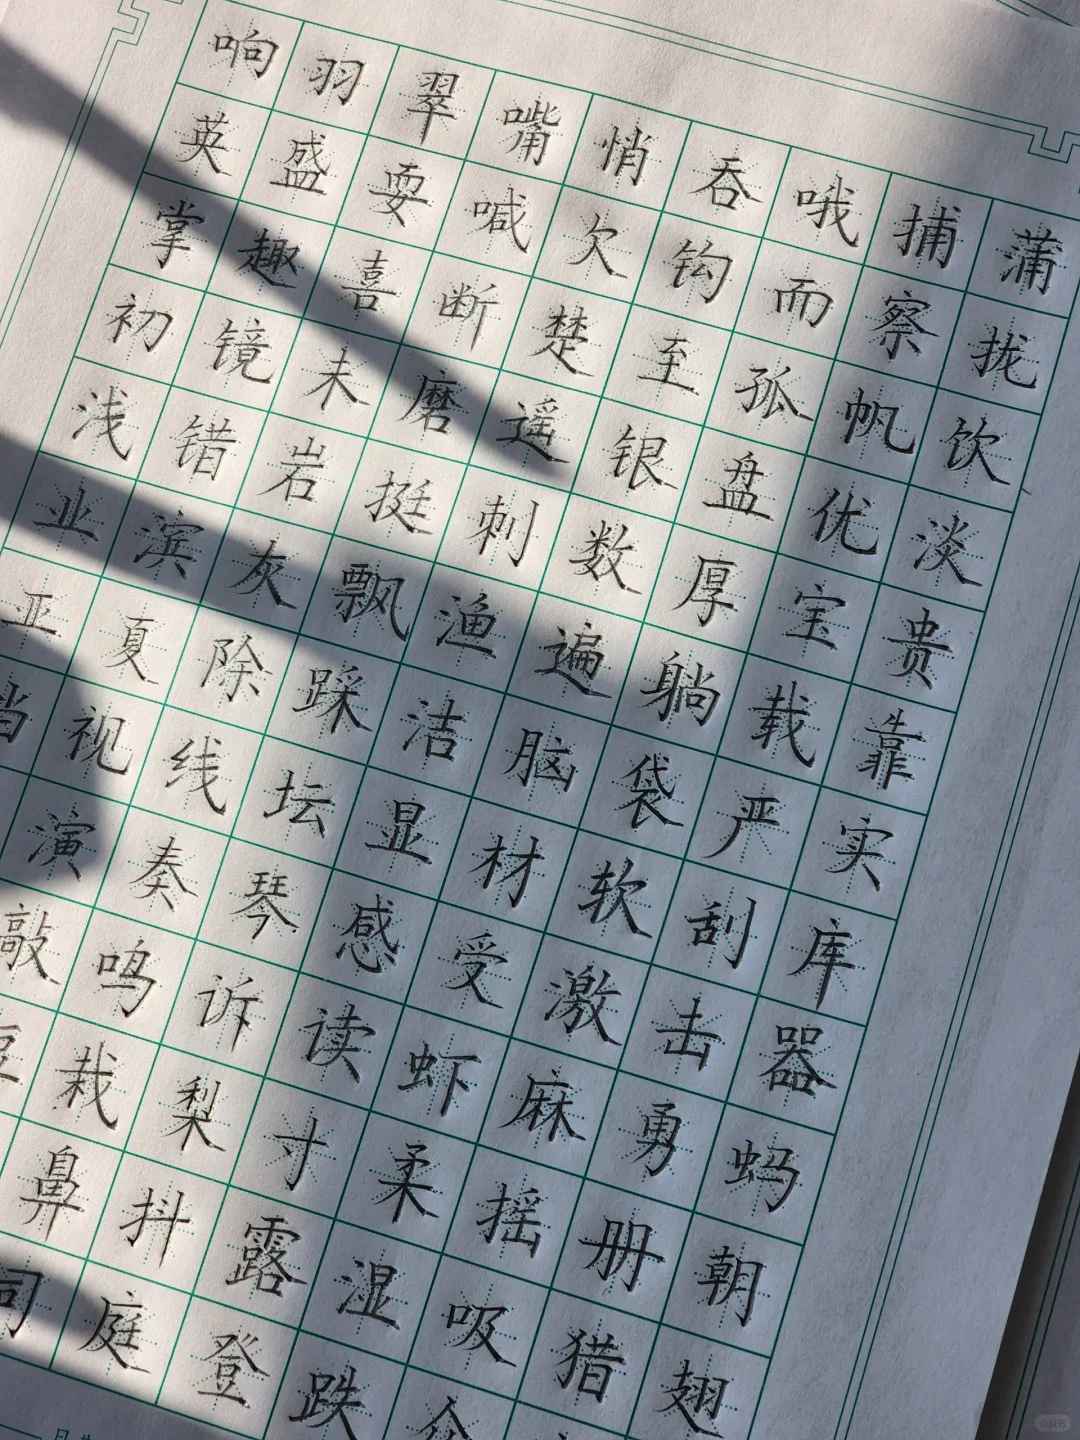 响羽翠嘴悄吞哦捕蒲
英盛耍喊欠钩而察拢
掌趣喜断楚至孤帆饮
初镜未磨遥银盘优淡
浅错岩挺刺数厚宝贵
业滨灰飘渔遍躺载靠
亚夏除踩洁脑袋严实
视线坛显材软刮库
演奏琴感受激击器
敲鸣诉读虾麻勇蚂
栽梨寸柔摇册朝
鼻抖露湿吸猎翅
庭登跌
小红书